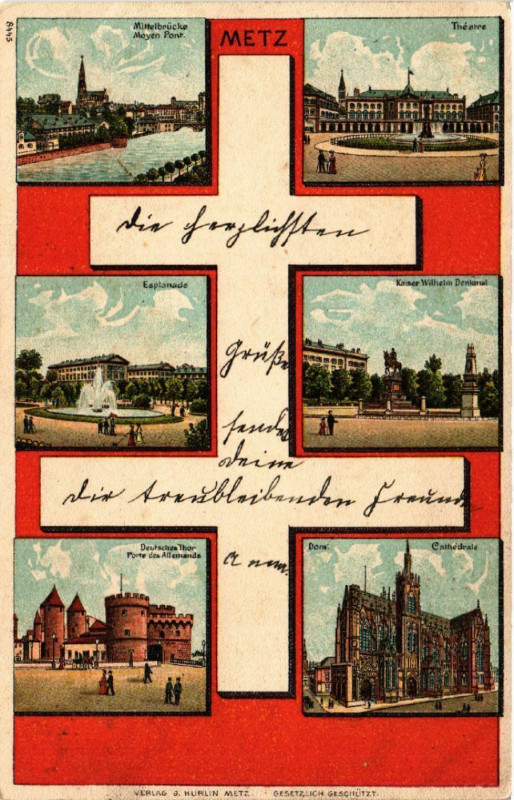 8445
Mittelbrücke
Moyen Pont.
METZ
Théatre
Die herzlichsten
Esplanade
Kaiser Wilhelm Denkmal
Grüße
sendet
Deine
Dir treubleibenden Freundin
Deutsches Thor
Porte des Allemands
Anna.
Dom.
Cathédrale
VERLAG G. HURLIN METZ. GESETZLICH GESCHÜTZT.